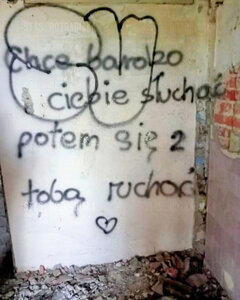 chcę bardzo
ciebie słuchać
potem się z
tobą ruchać